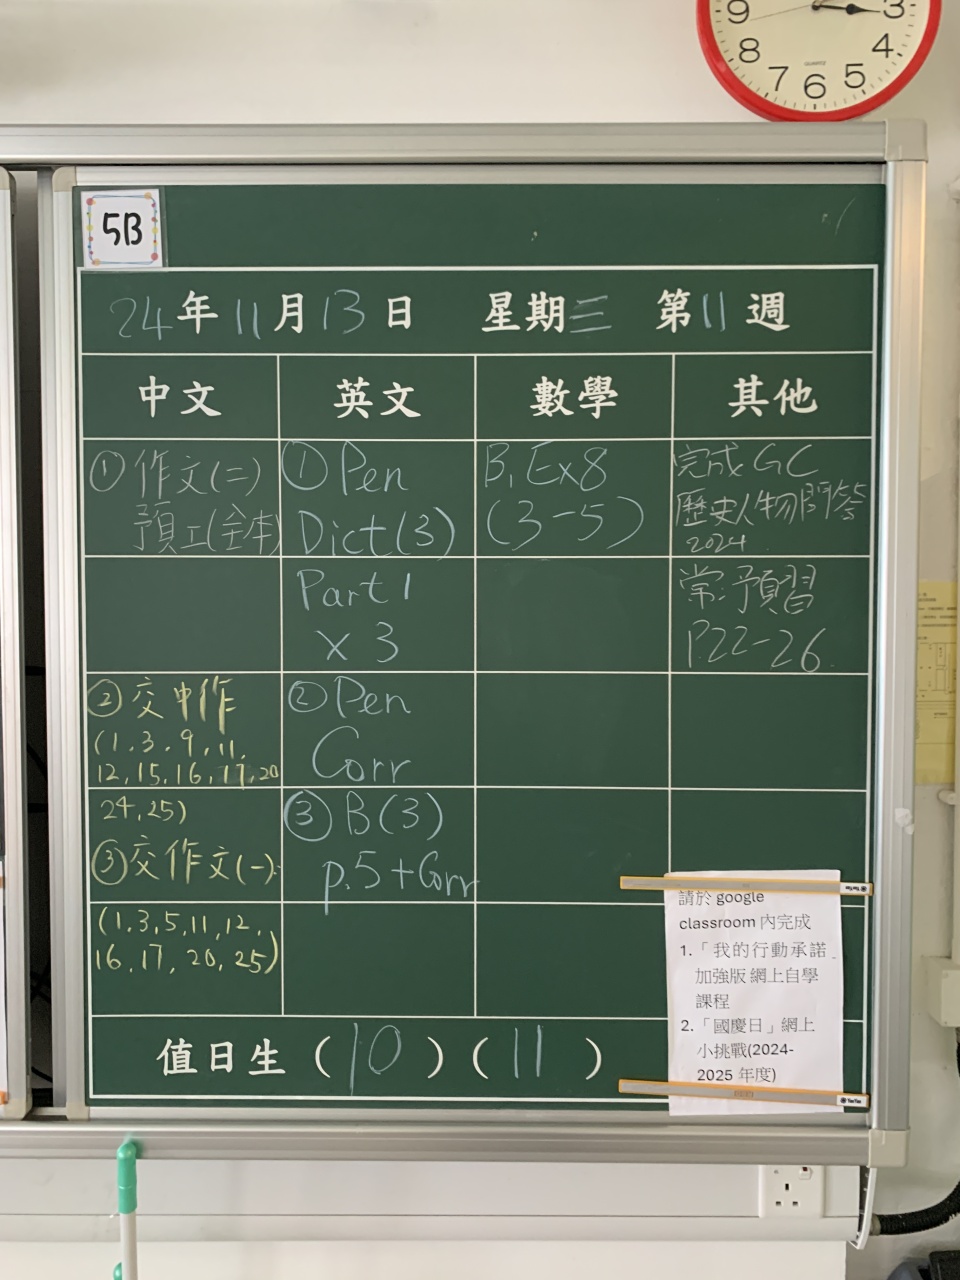 9
3
8
4
7
6
5
QUARTZ
5B
24年11月13日 星期三 第11週
中文 英文 數學 其他
①作文(二)
預工(全本)
①Pen
Dict(3)
Part 1
x 3
B, Ex8
(3-5)
完成GC
歷史人物問答
2024
常:預習
P.22-26.
②交中作
(1.3.9,11,
12,15,16,17,20
24,25)
③交作文(一):
(1.3,5,11,12,
16,17,20,25)
②Pen
Corr
③B(3)
p.5+Corr
請於 google
classroom 內完成
1.「我的行動承諾
加強版 網上自學
課程
2.「國慶日」網上
小挑戰(2024-
2025 年度)
值日生(10)(11)